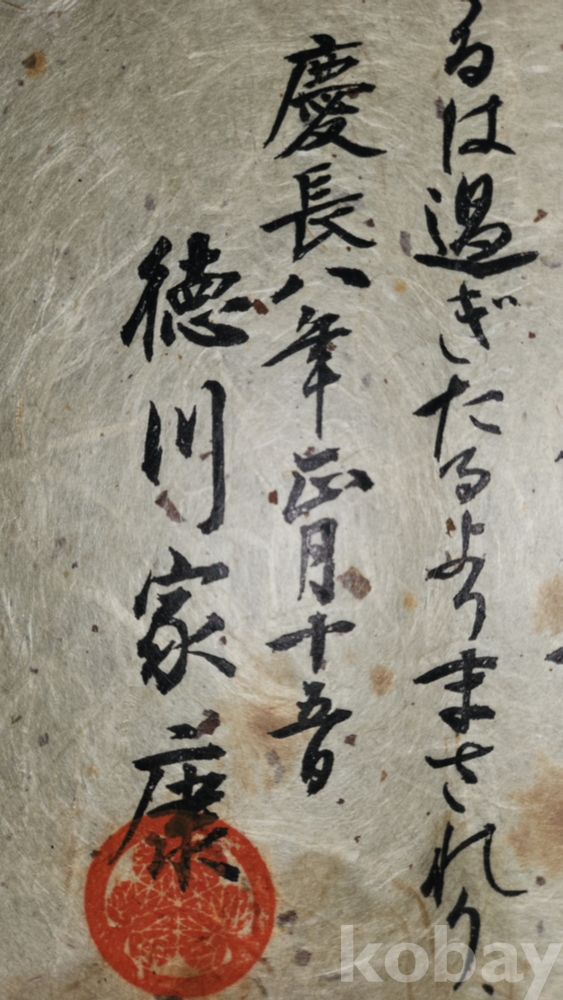 るは過ぎたるよりまされり
慶長八年正月十五日
徳川家康
kobay